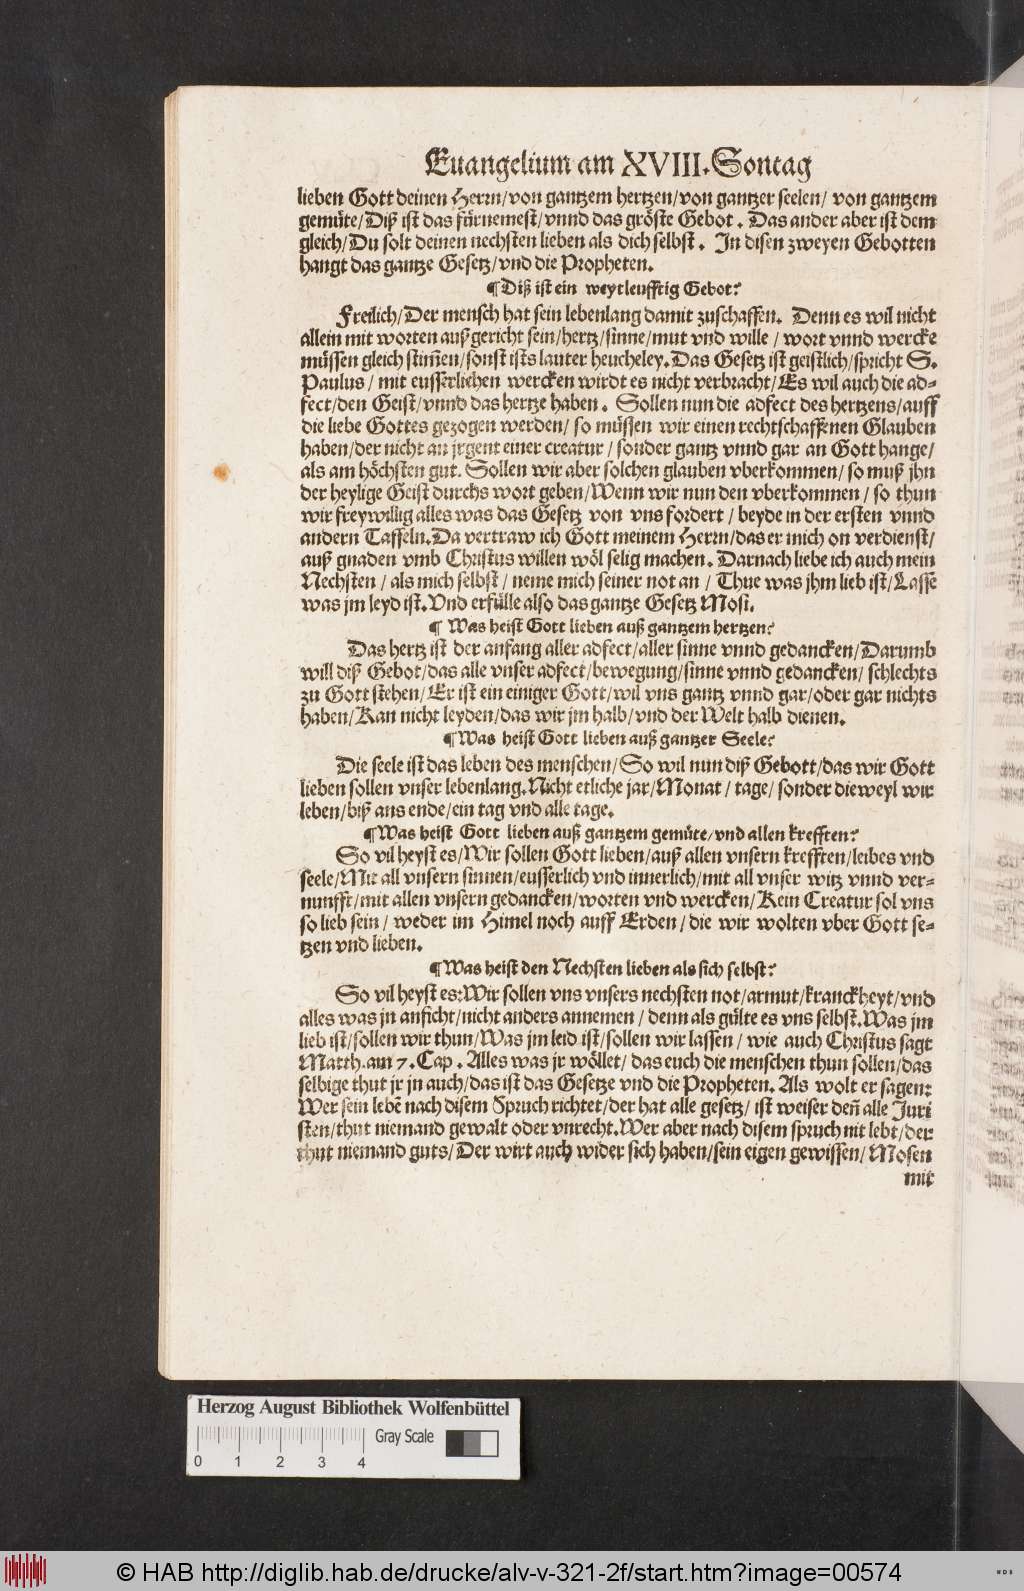 Euangelium am XVIII. Sontag
lieben Gott deinen Herrn/von gantzem hertzen/von gantzer seelen/ von gantzem
gemüte/Diß ist das fürnemest/vnnd das gröste Gebot. Das ander aber ist dem
gleich/Du solt deinen nechsten lieben als dich selbst. In disen zweyen Gebotten
hangt das gantze Gesetz/vnd die Propheten.
¶ Diß ist ein weytleufftig Gebot?
Freilich/Der mensch hat sein lebenlang damit zuschaffen. Denn es wil nicht
allein mit worten außgericht sein/hertz/sinne/mut vnd wille / wort vnnd wercke
müssen gleich stim̄en/sonst ists lauter heucheley. Das Gesetz ist geistlich/spricht S.
Paulus / mit eusserlichen wercken wirdt es nicht verbracht/Es wil auch die ad-
fect/den Geist/vnnd das hertze haben. Sollen nun die adfect des hertzens/auff
die liebe Gottes gezogen werden/ so müssen wir einen rechtschaffenen Glauben
haben/der nicht an jrgent einer creatur / sonder gantz vnnd gar an Gott hange/
als am höchsten gut. Sollen wir aber solchen glauben vberkommen/ so muß jhn
der heylige Geist durchs wort geben/Wenn wir nun den vberkommen / so thun
wir freywillig alles was das Gesetz von vns fordert / beyde in der ersten vnnd
andern Taffeln. Da vertraw ich Gott meinem Herrn/das er mich on verdienst/
auß gnaden vmb Christus willen wöl selig machen. Darnach liebe ich auch mein
Nechsten / als mich selbst / neme mich seiner not an / Thue was jhm lieb ist/Lasse
was jm leyd ist. Vnd erfülle also das gantze Gesetz Mosi.
¶ Was heist Gott lieben auß gantzem hertzen?
Das hertz ist der anfang aller adfect/aller sinne vnnd gedancken/Darumb
will diß Gebot/das alle vnser adfect/bewegung/sinne vnnd gedancken/ schlechts
zu Gott stehen/Er ist ein einiger Gott/wil vns gantz vnnd gar/oder gar nichts
haben/Kan nicht leyden/das wir jm halb/vnd der Welt halb dienen.
¶ Was heist Gott lieben auß gantzer Seele?
Die seele ist das leben des menschen/So wil nun diß Gebott/das wir Gott
lieben sollen vnser lebenlang. Nicht etliche jar/Monat / tage/ sonder dieweyl wir
leben/biß ans ende/ein tag vnd alle tage.
¶ Was heist Gott lieben auß gantzem gemüte/vnd allen krefften?
So vil heyst es/Wir sollen Gott lieben/auß allen vnsern krefften/leibes vnd
seele/Mit all vnsern sinnen/eusserlich vnd innerlich/mit all vnser witz vnnd ver-
nunfft/mit allen vnsern gedancken/worten vnd wercken/Kein Creatur sol vns
so lieb sein / weder im Himel noch auff Erden/die wir wolten vber Gott se-
tzen vnd lieben.
¶ Was heist den Nechsten lieben als sich selbst?
So vil heyst es:Wir sollen vns vnsers nechsten not/armut/kranckheyt/vnd
alles was jn anficht/nicht anders annemen / denn als gülte es vns selbst. Was jm
lieb ist/sollen wir thun/Was jm leid ist/sollen wir lassen / wie auch Christus sagt
Matth. am 7. Cap. Alles was jr wöllet/ das euch die menschen thun sollen/das
selbige thut jr jn auch/das ist das Gesetze vnd die Propheten. Als wolt er sagen:
Wer sein lebē nach disem Spruch richtet/der hat alle gesetz/ ist weiser deñ alle Juri
sten/thut niemand gewalt oder vnrecht. Wer aber nach disem spruch nit lebt/der
thut niemand guts/Der wirt auch wider sich haben/sein eigen gewissen/Mosen
mit
Herzog August Bibliothek Wolfenbüttel
Gray Scale
0 1 2 3 4
© HAB http://diglib.hab.de/drucke/alv-v-321-2f/start.htm?image=00574